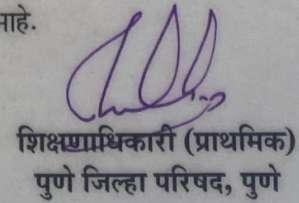 आहे.
शिक्षणाधिकारी (प्राथमिक)
पुणे जिल्हा परिषद, पुणे